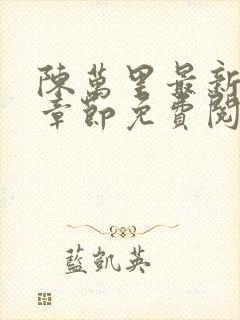 陳萬里最新
章節免費閱
藍凱英